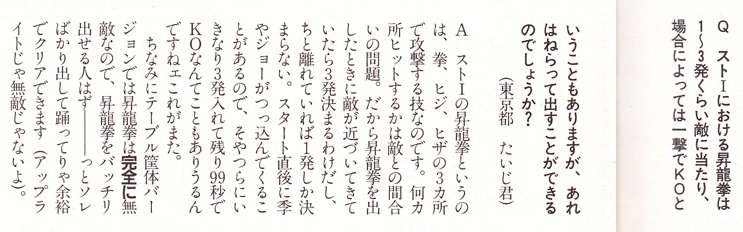 Q　ストⅠにおける昇龍拳は
1〜3発くらい敵に当たり、
場合によっては一撃でKOと
いうこともありますが、あれ
はねらって出すことができる
のでしょうか？
（東京都　たいじ君）
A　ストⅠの昇龍拳というの
は、拳、ヒジ、ヒザの3カ所
で攻撃する技なのです。何カ
所ヒットするかは敵との間合
いの問題。だから昇龍拳を出
したときに敵が近づいてきて
いたら3発決まるわけだし、
ちと離れていれば1発しか決
まらない。スタート直後に季
やジョーがつっ込んでくるこ
とがあるので、そやつらにい
きなり3発入れて残り99秒で
KOなんてこともありうるん
ですねェこれがまた。
　ちなみにテーブル筐体バー
ジョンでは昇龍拳は完全に無
敵なので、昇龍拳をバッチリ
出せる人はず――っとソレ
ばかり出して踊ってりゃ余裕
でクリアできます（アップラ
イトじゃ無敵じゃないよ）。